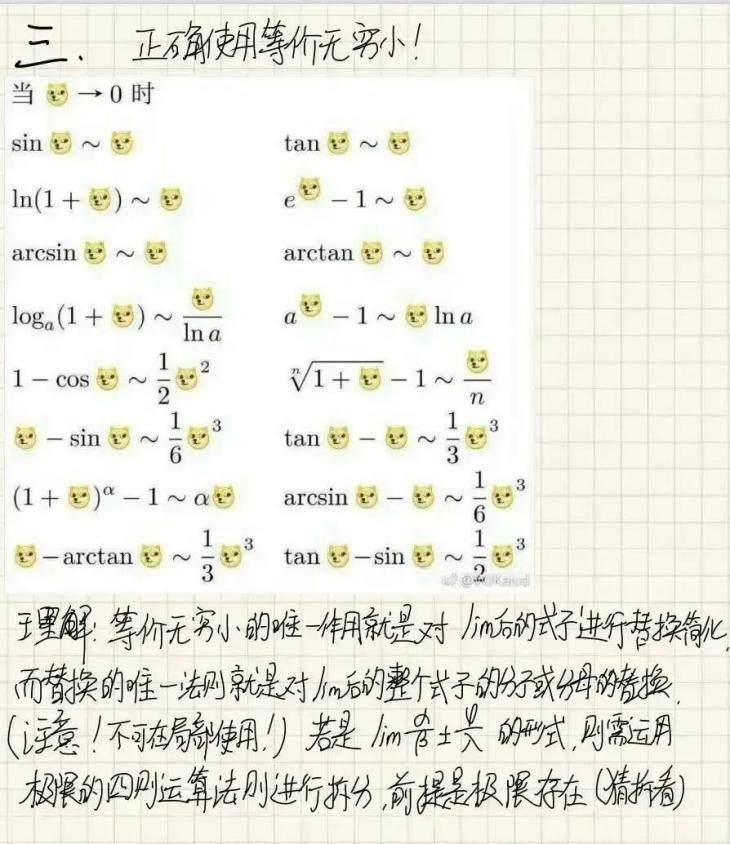 三. 正确使用等价无穷小!
当 🐶 → 0 时
sin 🐶 ~ 🐶 tan 🐶 ~ 🐶
ln(1 + 🐶) ~ 🐶 e^🐶 − 1 ~ 🐶
arcsin 🐶 ~ 🐶 arctan 🐶 ~ 🐶
logₐ(1 + 🐶) ~ 🐶/ln a a^🐶 − 1 ~ 🐶 ln a
1 − cos 🐶 ~ 1/2 🐶² ⁿ√(1 + 🐶) − 1 ~ 🐶/n
🐶 − sin 🐶 ~ 1/6 🐶³ tan 🐶 − 🐶 ~ 1/3 🐶³
(1 + 🐶)^α − 1 ~ α🐶 arcsin 🐶 − 🐶 ~ 1/6 🐶³
🐶 − arctan 🐶 ~ 1/3 🐶³ tan 🐶 − sin 🐶 ~ 1/2 🐶³
理解: 等价无穷小的唯一作用就是对 lim后的式子进行替换简化,
而替换的唯一法则就是对lim后的整个式子的分子或分母的替换.
(注意!不可在局部使用!) 若是 lim α/β ± φ/λ 的形式,则需运用
极限的四则运算法则进行拆分,前提是极限存在 (猜拆看)